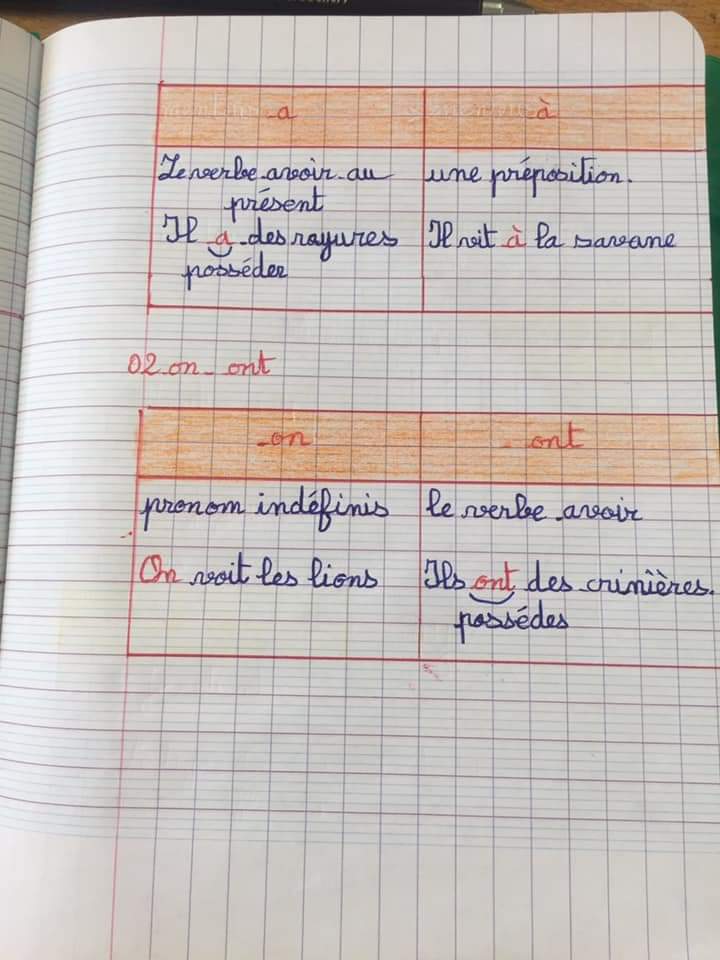 a à
Le verbe avoir au une préposition.
présent
Il a des rayures Il vit à la savane
posséder
02 on - ont
on ont
pronom indéfinis le verbe avoir
On voit les lions Ils ont des crinières.
possédes